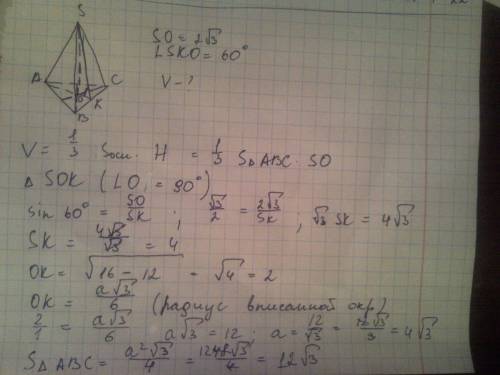 S
SO = 2√3
∠SKO = 60°
A
C
K
B
V - ?
V = 1/3 Sосн. H = 1/3 S△ABC · SO
△ SOK (∠O = 90°)
sin 60° = SO/SK ; √3/2 = 2√3/SK ; √3 SK = 4√3
SK = 4√3/√3 = 4
OK = √(16 - 12) = √4 = 2
OK = a√3/6 (радиус вписанной окр)
2/1 = a√3/6 a√3 = 12 · a = 12/√3 = 12√3/3 = 4√3
S△ABC = a²√3/4 = 48√3/4 = 12√3